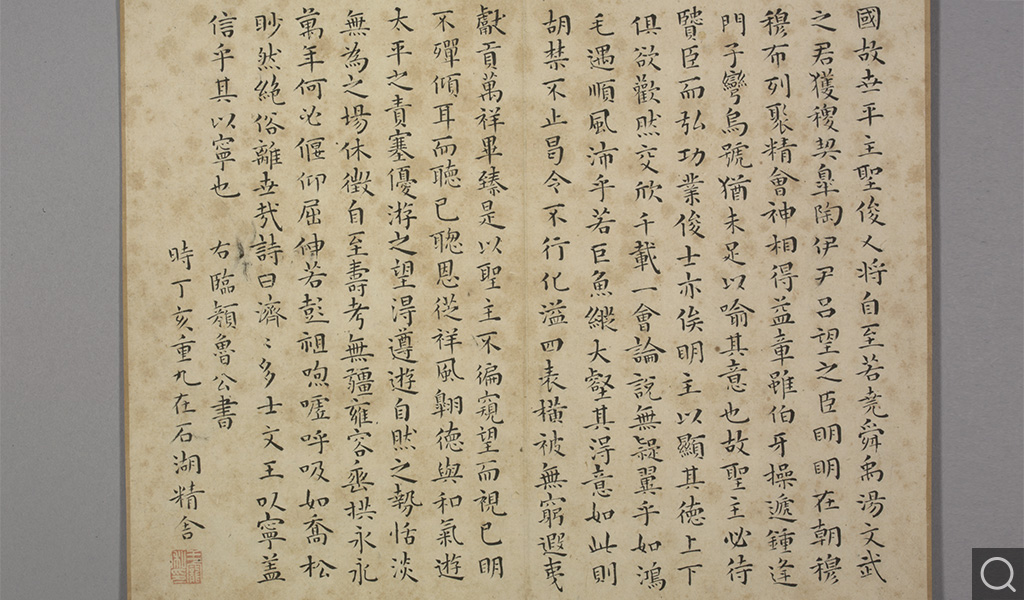 國故世平主聖俊乂将自至若堯舜禹湯文武
之君獲稷契皐陶伊尹呂望之臣明明在朝穆
穆布列聚精會神相得益章雖伯牙操遞鍾逢
門子彎烏號猶未足以喻其意也故聖主必待
賢臣而弘功業俊士亦俟明主以顯其德上下
俱欲歡然交欣千載一會論說無疑翼乎如鴻
毛遇順風沛乎若巨魚縱大壑其得意如此則
胡禁不止曷令不行化溢四表橫被無窮遐夷
獻貢萬祥畢臻是以聖主不徧窺望而視已明
不殫傾耳而聽已聰恩從祥風翺德與和氣遊
太平之責塞優游之望得遵遊自然之勢恬淡
無為之場休徵自至壽考無疆雍容垂拱永永
萬年何必偃仰屈伸若彭祖呴噓呼吸如喬松
眇然絕俗離世哉詩曰濟〻多士文王以寧蓋
信乎其以寧也
右臨顏魯公書
時丁亥重九在石湖精舍